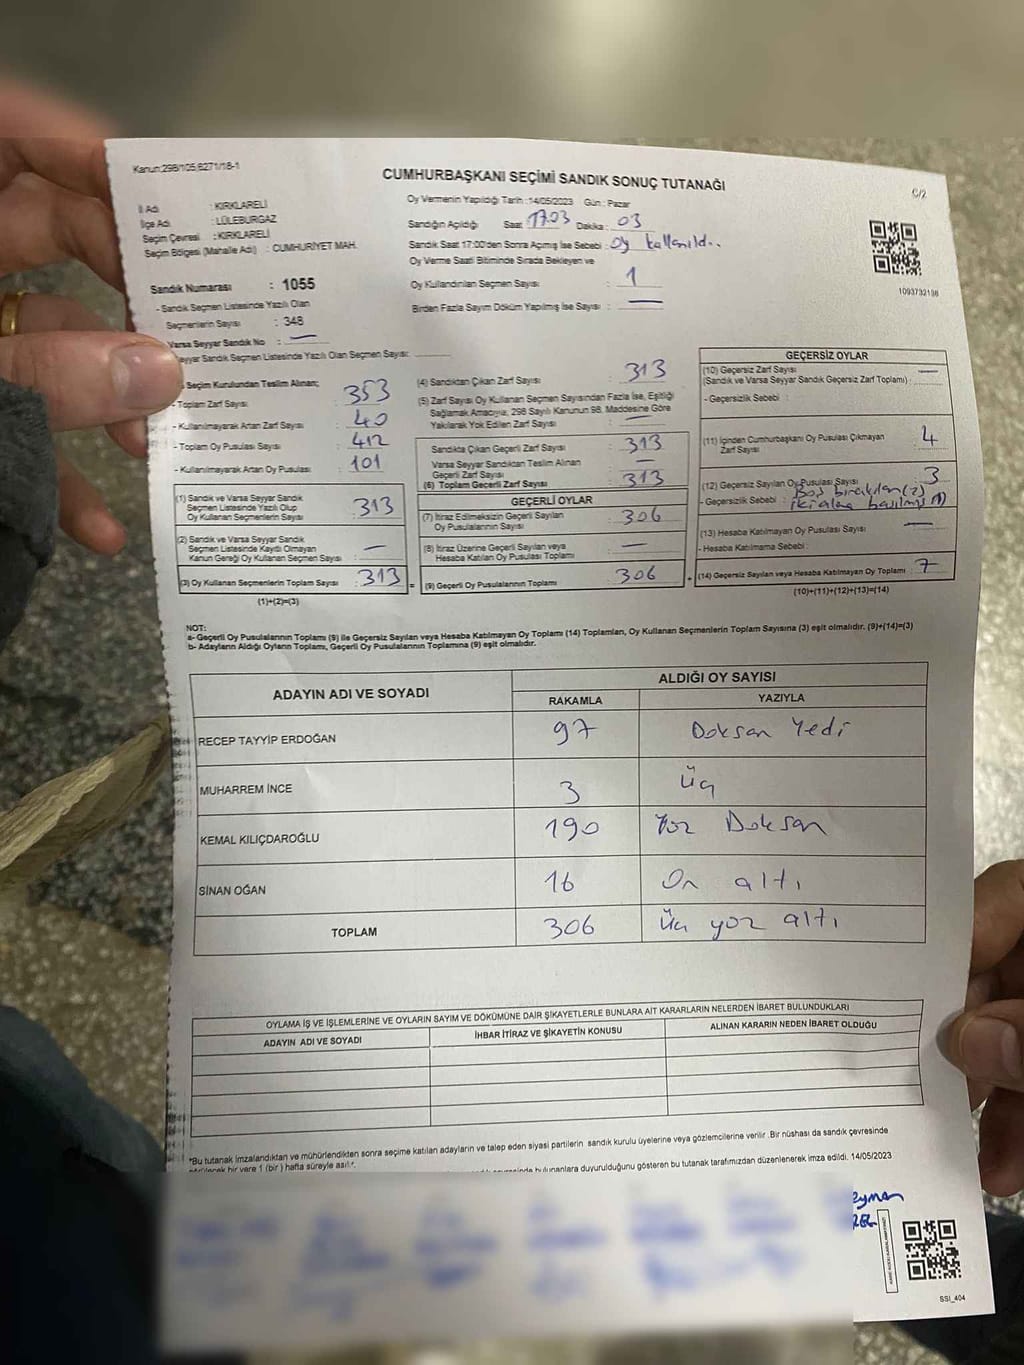 Kanun:298/105,6271/18-1
CUMHURBAŞKANI SEÇİMİ SANDIK SONUÇ TUTANAĞI
C/2
İl Adı : KIRKLARELİ
İlçe Adı : LÜLEBURGAZ
Seçim Çevresi : KIRKLARELİ
Seçim Bölgesi (Mahalle Adı) : CUMHURİYET MAH.
Oy Vermenin Yapıldığı Tarih :14/05/2023 Gün : Pazar
Sandığın Açıldığı Saat 17.03 Dakika : 03
Sandık Saat 17:00'den Sonra Açmış İse Sebebi : Oy kullanıldı..
Oy Verme Saati Bitiminde Sırada Bekleyen ve
Oy Kullandırılan Seçmen Sayısı : 1
Birden Fazla Sayım Döküm Yapılmış İse Sayısı : —
1093732198
Sandık Numarası : 1055
- Sandık Seçmen Listesinde Yazılı Olan
Seçmenlerin Sayısı : 348
Varsa Seyyar Sandık No : —
eyyar Sandık Seçmen Listesinde Yazılı Olan Seçmen Sayısı:
Seçim Kurulundan Teslim Alınan;
- Toplam Zarf Sayısı : 353
- Kullanılmayarak Artan Zarf Sayısı : 40
- Toplam Oy Pusulası Sayısı : 412
- Kullanılmayarak Artan Oy Pusulası : 101
(1) Sandık ve Varsa Seyyar Sandık
Seçmen Listesinde Yazılı Olup
Oy Kullanan Seçmenlerin Sayısı : 313
(2) Sandık ve Varsa Seyyar Sandık
Seçmen Listesinde Kaydı Olmayan
Kanun Gereği Oy Kullanan Seçmen Sayısı : —
(3) Oy Kullanan Seçmenlerin Toplam Sayısı : 313
(1)+(2)=(3)
(4) Sandıktan Çıkan Zarf Sayısı : 313
(5) Zarf Sayısı Oy Kullanan Seçmen Sayısından Fazla İse, Eşitliği
Sağlamak Amacıyla, 298 Sayılı Kanunun 98. Maddesine Göre
Yakılarak Yok Edilen Zarf Sayısı : —
Sandıkta Çıkan Geçerli Zarf Sayısı : 313
Varsa Seyyar Sandıktan Teslim Alınan
Geçerli Zarf Sayısı : —
(6) Toplam Geçerli Zarf Sayısı : 313
GEÇERLİ OYLAR
(7) İtiraz Edilmeksizin Geçerli Sayılan
Oy Pusulalarının Sayısı : 306
(8) İtiraz Üzerine Geçerli Sayılan veya
Hesaba Katılan Oy Pusulası Toplamı : —
(9) Geçerli Oy Pusulalarının Toplamı : 306
GEÇERSİZ OYLAR
(10) Geçersiz Zarf Sayısı
(Sandık ve Varsa Seyyar Sandık Geçersiz Zarf Toplamı) : —
- Geçersizlik Sebebi :
(11) İçinden Cumhurbaşkanı Oy Pusulası Çıkmayan
Zarf Sayısı : 4
(12) Geçersiz Sayılan Oy Pusulası Sayısı : 3
- Geçersizlik Sebebi : Boş bırakılan (2)
iki alana basılmış (1)
(13) Hesaba Katılmayan Oy Pusulası Sayısı : —
- Hesaba Katılmama Sebebi :
(14) Geçersiz Sayılan veya Hesaba Katılmayan Oy Toplamı : 7
(10)+(11)+(12)+(13)=(14)
NOT:
a- Geçerli Oy Pusulalarının Toplamı (9) ile Geçersiz Sayılan veya Hesaba Katılmayan Oy Toplamı (14) Toplamları, Oy Kullanan Seçmenlerin Toplam Sayısına (3) eşit olmalıdır. (9)+(14)=(3)
b- Adayların Aldığı Oyların Toplamı, Geçerli Oy Pusulalarının Toplamına (9) eşit olmalıdır.
ADAYIN ADI VE SOYADI
ALDIĞI OY SAYISI
RAKAMLA YAZIYLA
RECEP TAYYİP ERDOĞAN 97 Doksan Yedi
MUHARREM İNCE 3 Üç
KEMAL KILIÇDAROĞLU 190 Yüz Doksan
SİNAN OĞAN 16 On altı
TOPLAM 306 Üç yüz altı
OYLAMA İŞ VE İŞLEMLERİNE VE OYLARIN SAYIM VE DÖKÜMÜNE DAİR ŞİKAYETLERLE BUNLARA AİT KARARLARIN NELERDEN İBARET BULUNDUKLARI
ADAYIN ADI VE SOYADI İHBAR İTİRAZ VE ŞİKAYETİN KONUSU ALINAN KARARIN NEDEN İBARET OLDUĞU
*Bu tutanak imzalandıktan ve mühürlendikten sonra seçime katılan adayların ve talep eden siyasi partilerin sandık kurulu üyelerine veya gözlemcilerine verilir .Bir nüshası da sandık çevresinde
bir yere 1 (bir) hafta süreyle asılır. bulunanlara duyurulduğunu gösteren bu tutanak tarafımızdan düzenlenerek imza edildi. 14/05/2023
SSI_404